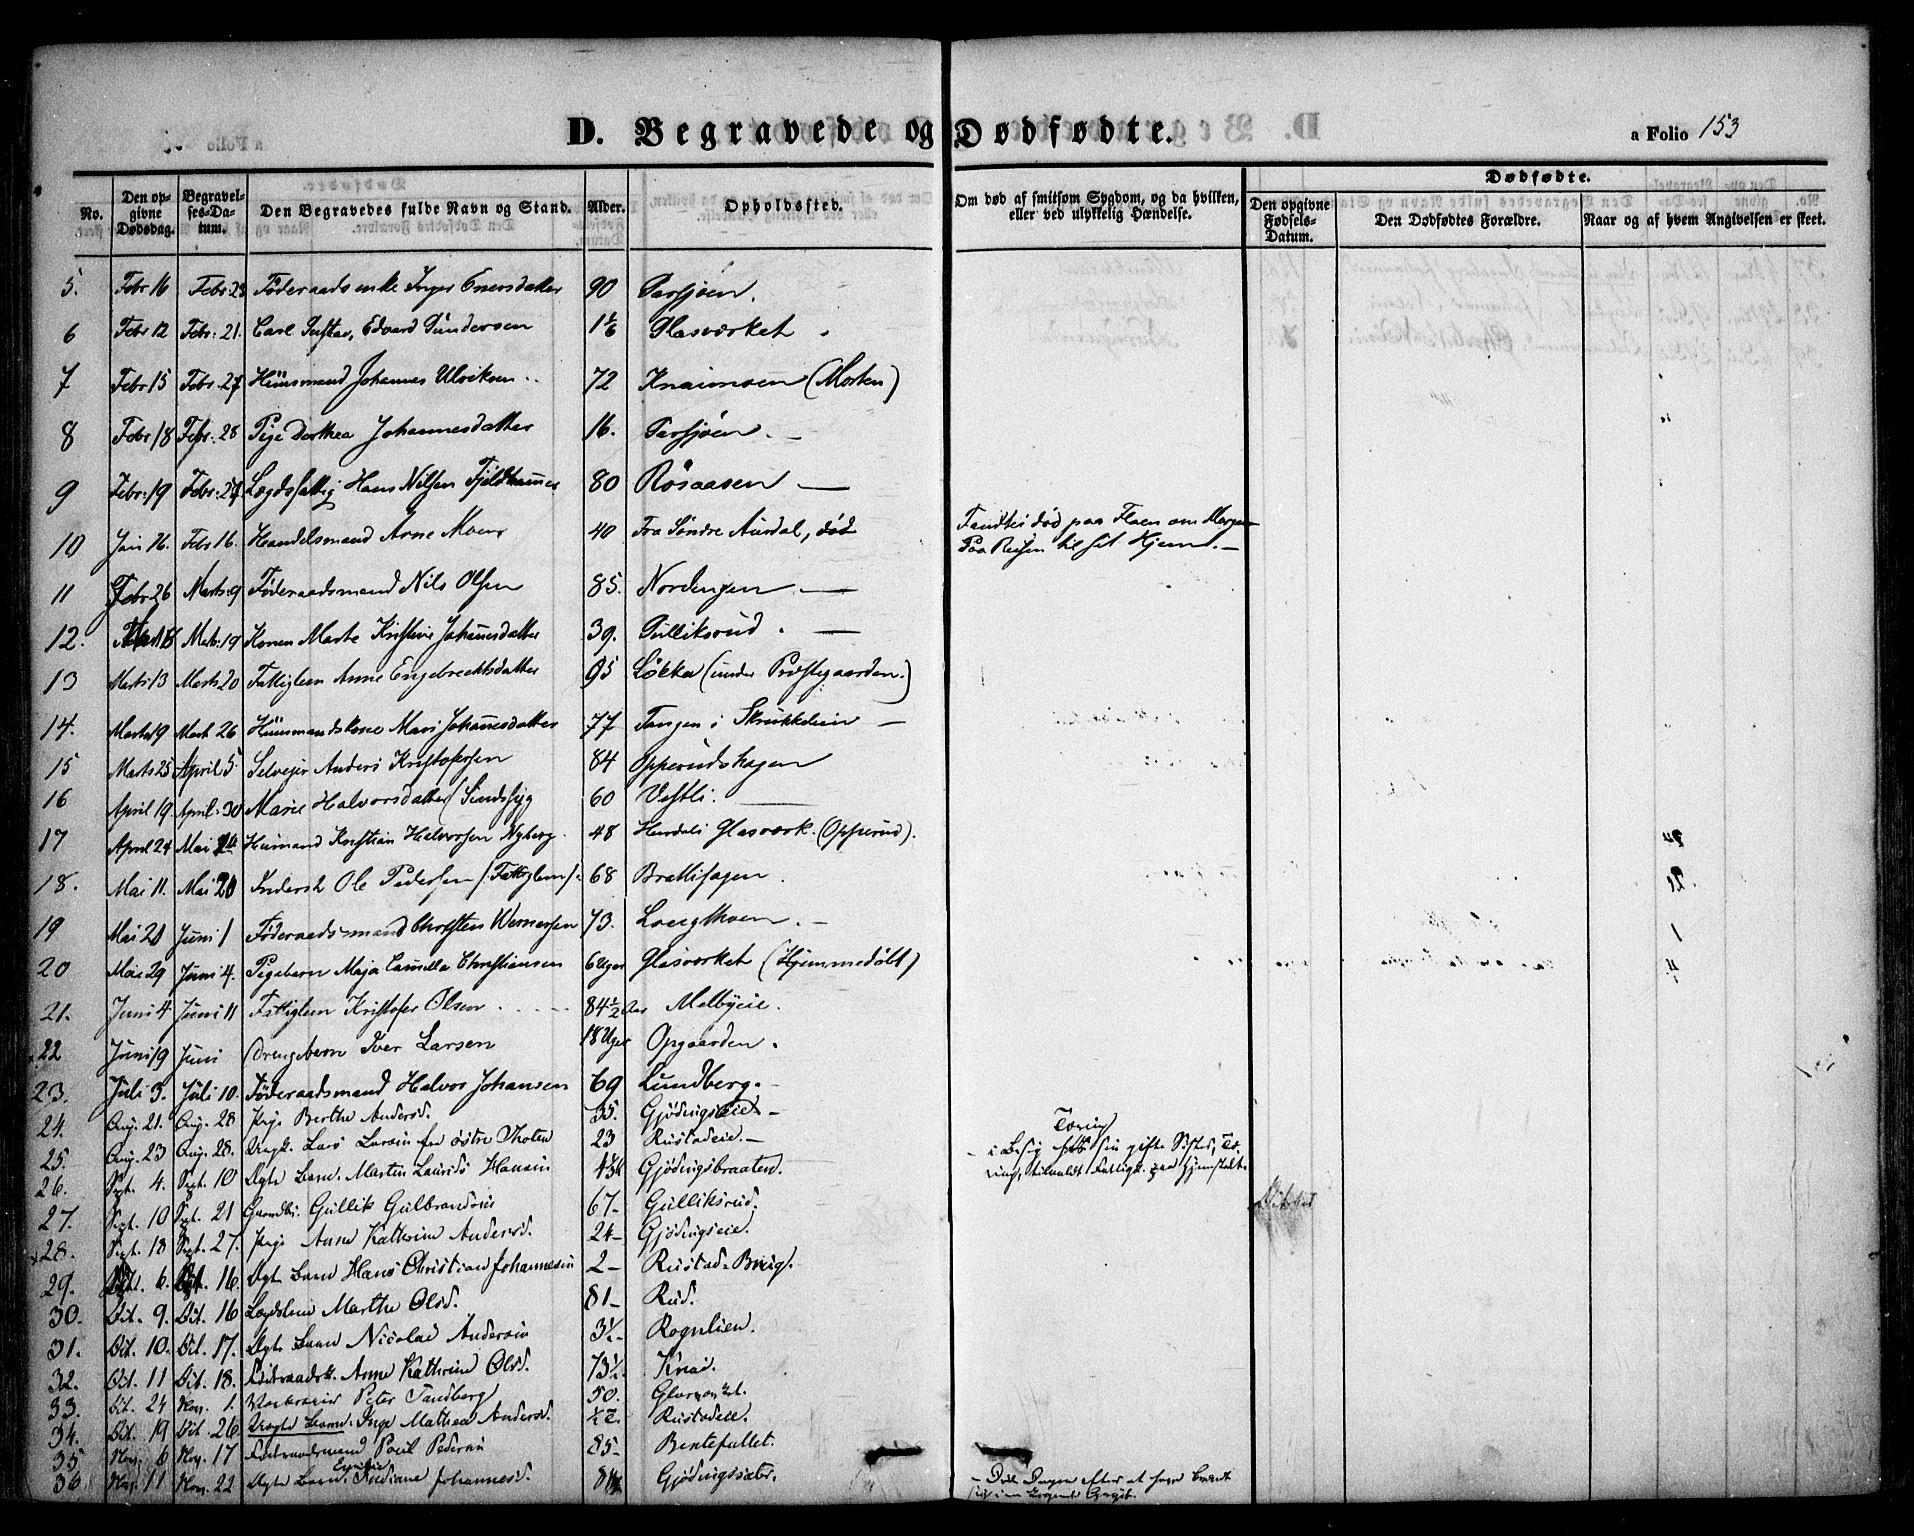 D. Begravede og Dødfødte.
a Folio 153
No.
Den opgivne Dødsdag.
Begravelses-Datum.
Den Begravedes fulde Navn og Stand.
Alder.
Opholdssted.
Om død af smitsom Sygdom, og da hvilken, eller ved ulykkelig Hændelse.
Dødfødte.
Den opgivne Fødsels-Datum.
Den Dødfødtes Forældre.
Naar og af hvem Angivelsen er skeet.
5. Febr 16 Febr: 23 Føderaadsenke Inger Enersdatter 90
6 Febr 12 Febr: 21. Carl Gustav, Edvard Gundersen 1 1/6 Glasværket
7 Febr 15 Febr: 27 Huusmand Johannes Ulriksen 72 Knaimoen (Morten)
8 Febr 18 Febr: 28 Pige Dorthea Johannesdatter 16.
9 Febr: 19 Febr: 27 Lægdsfattig Hans Nilsen Fjeldhammer 80 Røsaasen —
10 Jan 16. Febr 16. Handelsmand Arne Moen 40 Fra Søndre Aurdal, død Fandtes død paa Floen om Morgen Paa Reisen til sit Hjem. —
11 Febr 26 Marts: 9 Føderaadsmand Nils Olsen 85. Nordengen —
12. Marts 19 Konen Marte Kristine Johannesdatter 39. Gulliksrud —
13 Marts 13 Marts 20 Fattiglem Anne Engebrechtsdatter 95 Løkka (under Præstegaarden.)
14. Marts 19 Mart 26 Huusmandskone Mari Johannesdatter 77 Tangen i Skrukkelien —
15 Marts 25 April 5. Selveier Anders Kristofersen 84 Opperudshagen
16 April 19. April: 30 Marie Halvorsdatter (Sindssyg 60 Vestli.
17 April 24 Mai 24 Husmand Kristian Halvorsen Nyberg. 48 Hurdals Glasværk. (Opperud).
18. Mai 11. Mai 20 Inderst Ole Pedersen /:Fattiglem/: 68 Brattihagen.
19 Mai 20 Juni 1 Føderaadsmand Christen Wernersen 73.
20 Mai 29 Juni 4. Pigebarn Maja Camilla Christiansen 6 Uger Glasværket (Hjemmedøbt)
21. Juni 4 Juni 11 Fattiglem Kristofer Olsen 84 1/2 Aar Melbyeie.
22 Juni 19 Juni Drengebarn Iver Larsen 18 Uger Opgaarden.
23. Juli 3. Juli 10. Føderaadsmand Halvor Johansen 69 Lundberg. —
24. Aug. 21. Aug. 28 Pige Berthe Andersd. 35. Gjødingseie —
25. Aug. 23 Aug. 28. Ungk. Lars Larsen fra østre Thoten 23 Rustadeie. — Tæring
26. Sept. 4. Sept. 10 Ægte Barn. Martin Laurids Hansen Gjødingsbraaten.
27. Sept. 10 Sept. 21 Gaardbr. Gullik Gulbrandsen 67 - Gulliksrud.
28. Sept. 18 Sept. 27. Pige Anne Kathrine Andersd. 24 - Gjødingseie.
29. Oct. 6. Oct. 16. Ægte Barn Hans Christian Johannesen 2 - Rustad-Brug.
30. Oct. 9. Oct. 16 Lægdslem Marthe Olsd. 81 - Rud.
31. Oct. 10. Oct. 17. Ægte Barn Nicolai Andersen 3 1/2 - Rognlien.
32. Oct. 11 Oct. 18. Føderaadsk. Anne Kathrine Olsd. 73 1/2 - Knai.
33. Oct. 24 Nov. 1. Peter Sandberg 50. Glasværket.
34. Oct. 19 Oct. 26. Uægte Barn. Inge Mathea Andersd. Rustadeie.
35 Nov. 6 Nov. 17 Føderaadsmand Poul Pedersen 85 - Bentefallet.
36 Nov. 11 Nov. 22 Ægte Barn. Emilie Indiane Johannesd. Gjødingsæter. — Død Dagen efter at have brændt sig i en